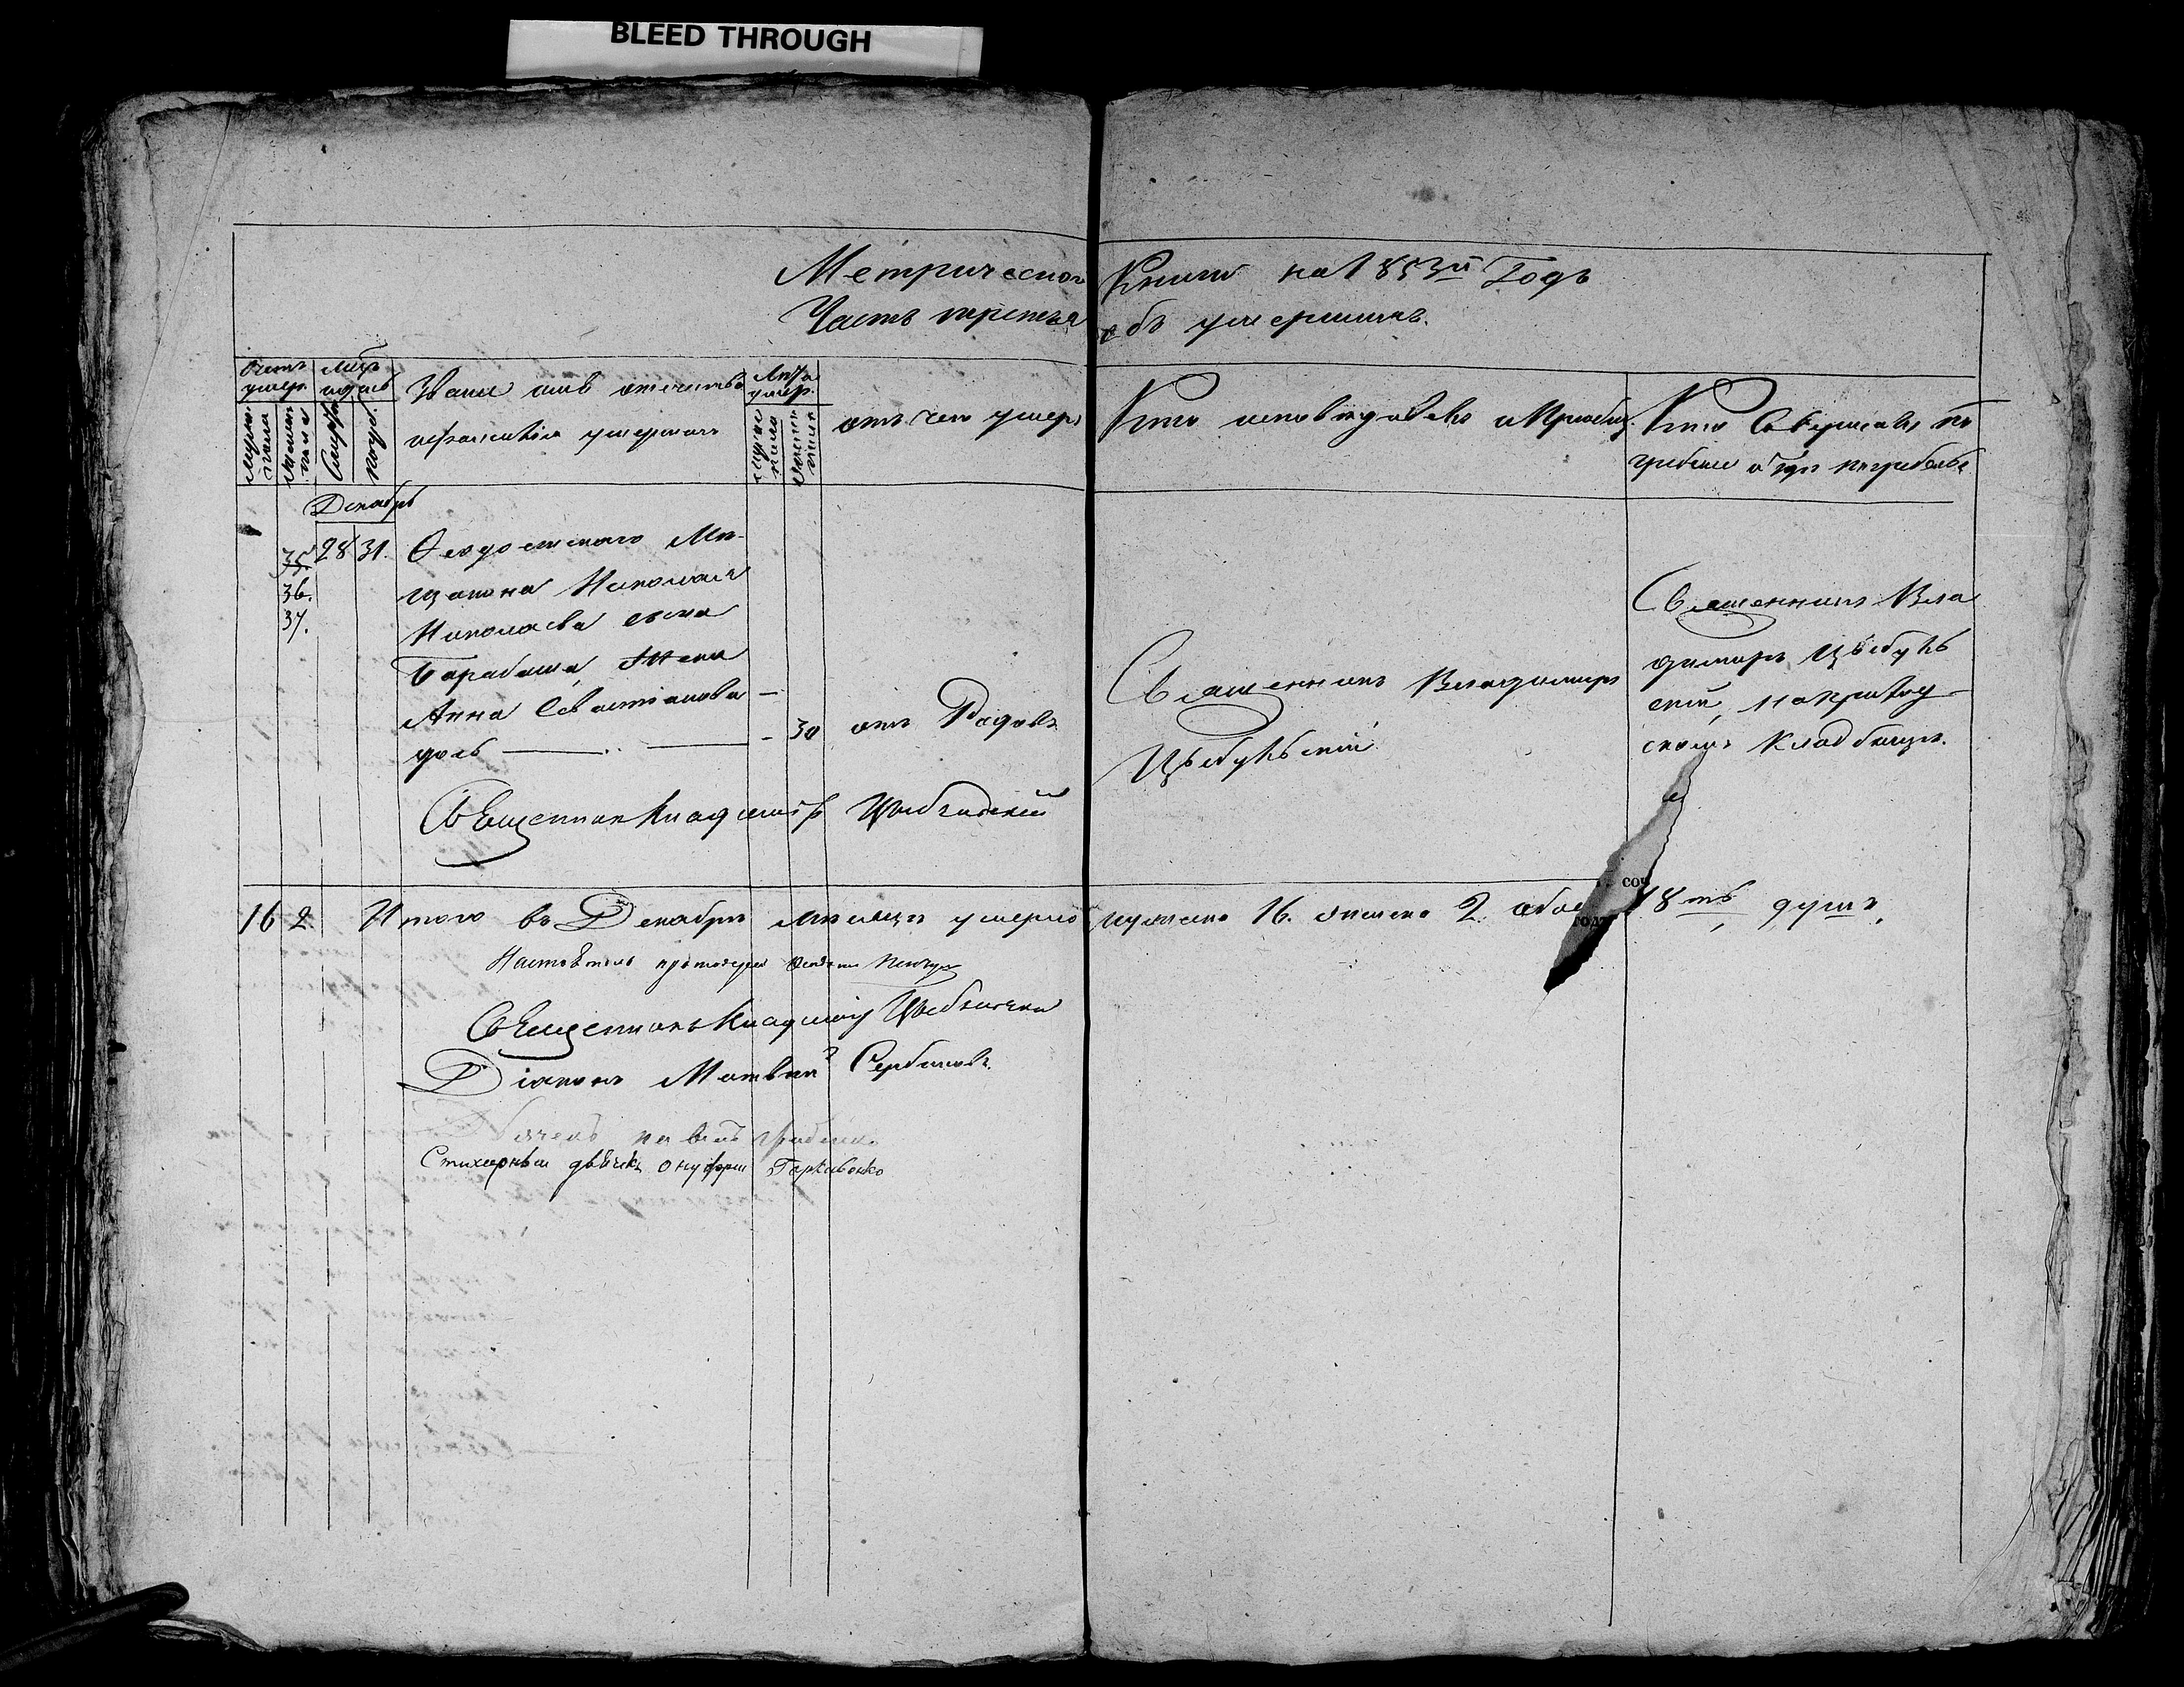 BLEED THROUGH
Метрической Книги на 1853й Годъ
Часть третья объ умершихъ.
Счетъ умер.
Мужеска пола
Женска пола
Мцъ и день
Смерти
Погр.
Званіе имя отечество
и фамилія умершихъ
Лѣта умер.
Мужска пола
Женска пола
отъ чего умеръ
Кто исповѣдовалъ и Пріобщ.
Кто Совершалъ по
гребеніе и гдѣ погребены
Декабрь
35.
36.
37.
28 31.
Ѳеодосійскаго Мѣ-
щанина Николая
Николаева сына
Барабаша, Жена
Анна Севастіанова
дочь
30 отъ Родовъ
Священникъ Владимиръ
Цыбульскій
Священникъ Вла
димиръ Цыбуль
скій, на Градо
скомъ Кладбищѣ.
Священникъ Владимир Цыбульский
16 2. Итого въ Декабрѣ мѣсяцѣ умерло мужеска 16. женска 2. обое 18ть душъ,
соч
год
Настоятель протоіерей
Священникъ Владимир Цыбульски
Діаконъ Матвѣй Сербиновъ.
Стихарный дьячокъ Онуфрий Горковенко